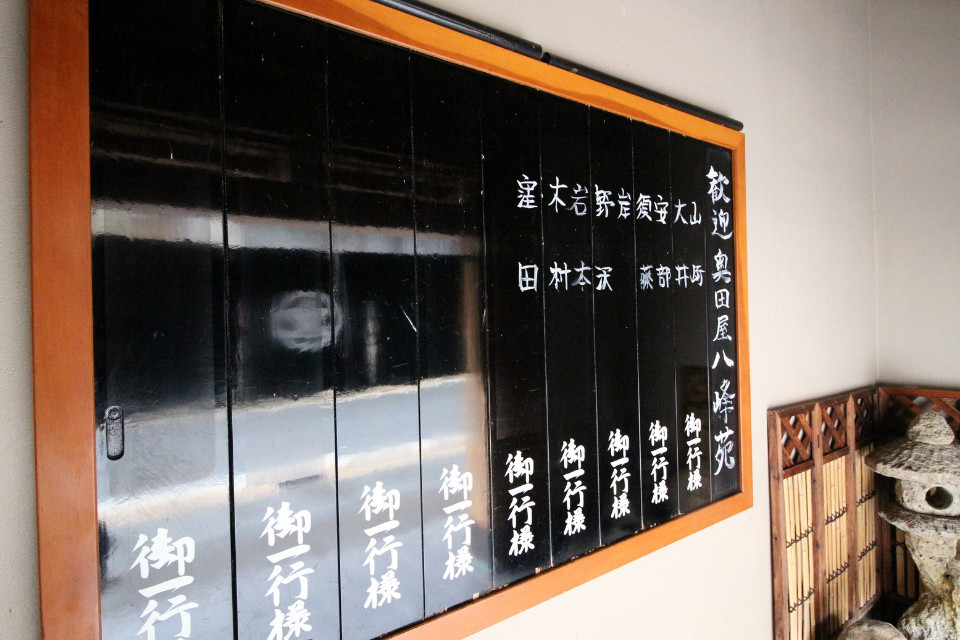 歓迎 奥田屋八峰苑
山崎
大井
御一行様
安部
須藤
御一行様
岸
野沢
御一行様
岩本
木村
御一行様
窪田
御一行様
御一行様
御一行様
御一行様
御一